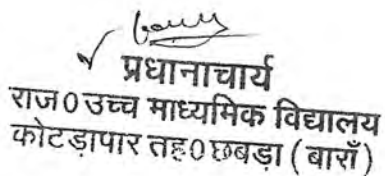 प्रधानाचार्य
राज0 उच्च माध्यमिक विद्यालय
कोटड़ापार तह0 छबड़ा ( बाराँ )